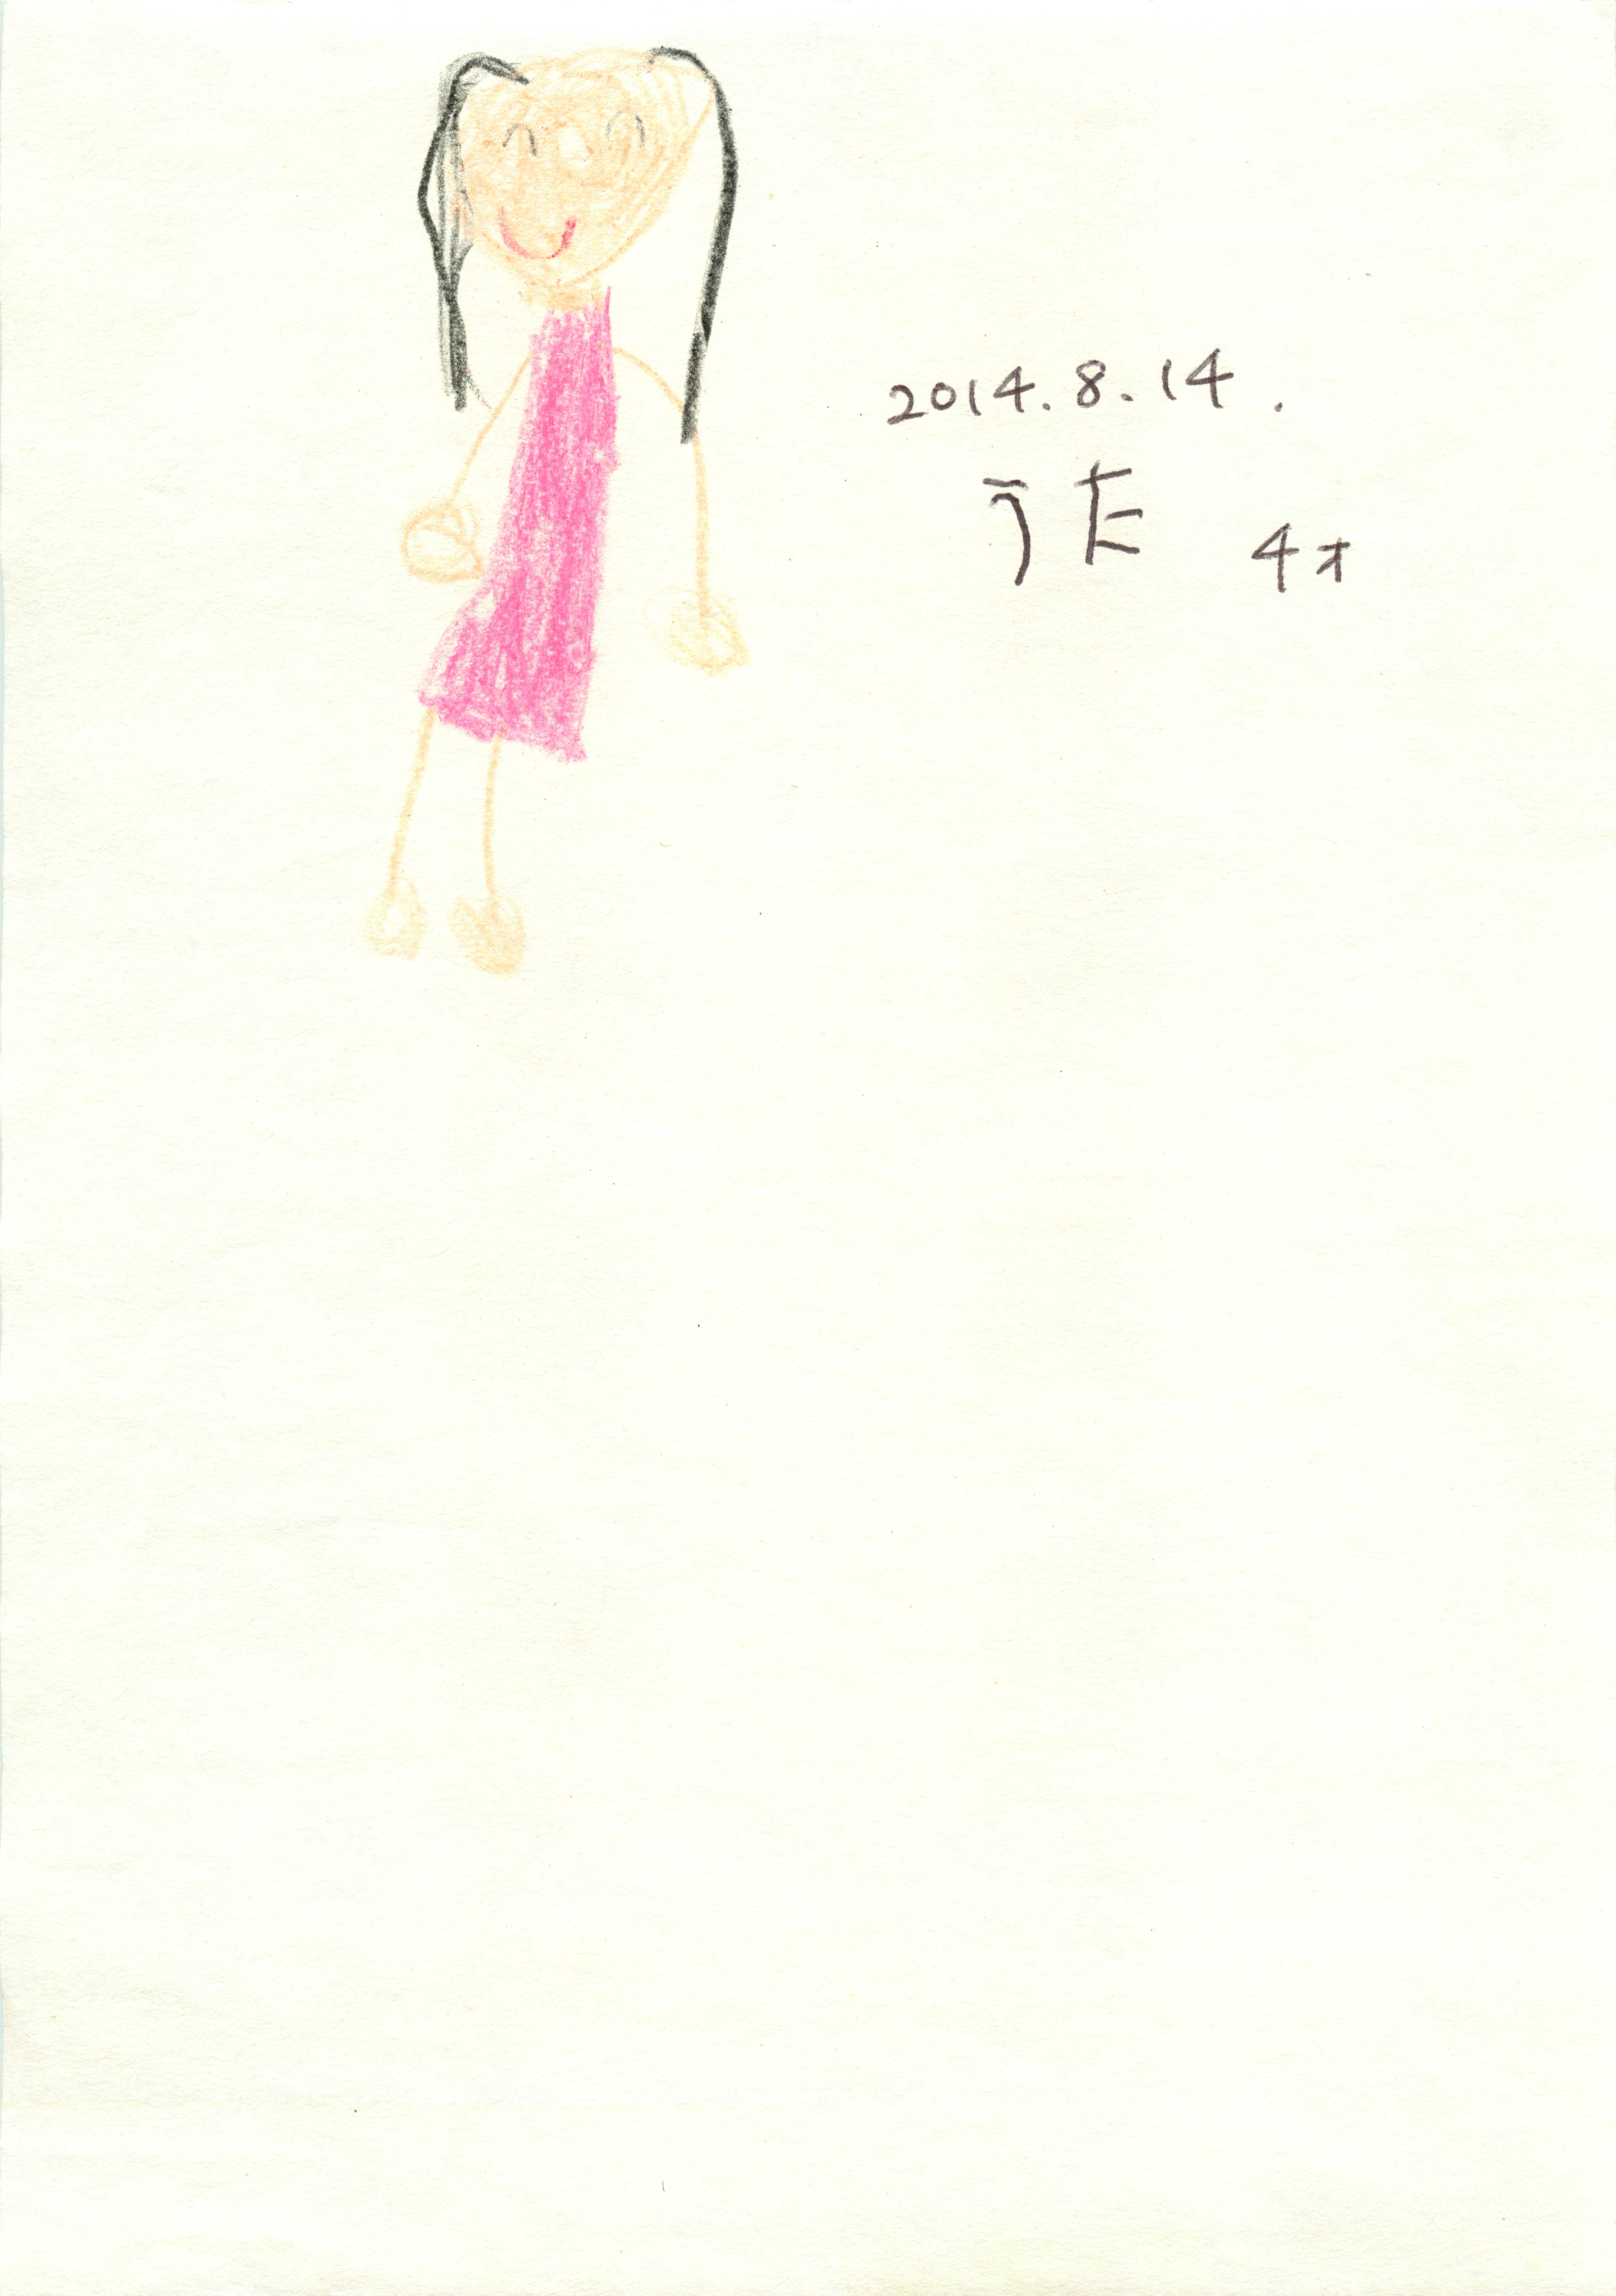 2014.8.14.
うた 4才